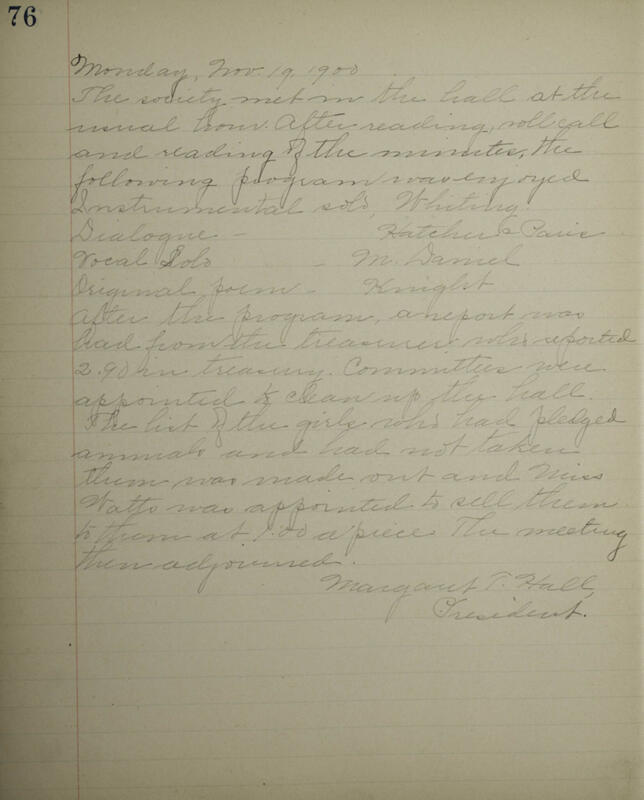 76
Monday, Nov. 19, 1900
The society met in the hall at the
usual hour. After reading, roll call
and reading of the minutes, the
following program was enjoyed
Instrumental solo, Whiting.
Dialogue - Hatcher & Paris
Vocal Solo - McDaniel
Original poem - Knight
After the program, a report was
had from the treasurer who reported
2.90 in treasury. Committees were
appointed to clean up the hall.
The list of the girls who had pledged
annuals and had not taken
them was made out and Miss
Watts was appointed to sell them
to them at 1.00 a piece. The meeting
then adjourned.
Margaret T. Hall,
President.